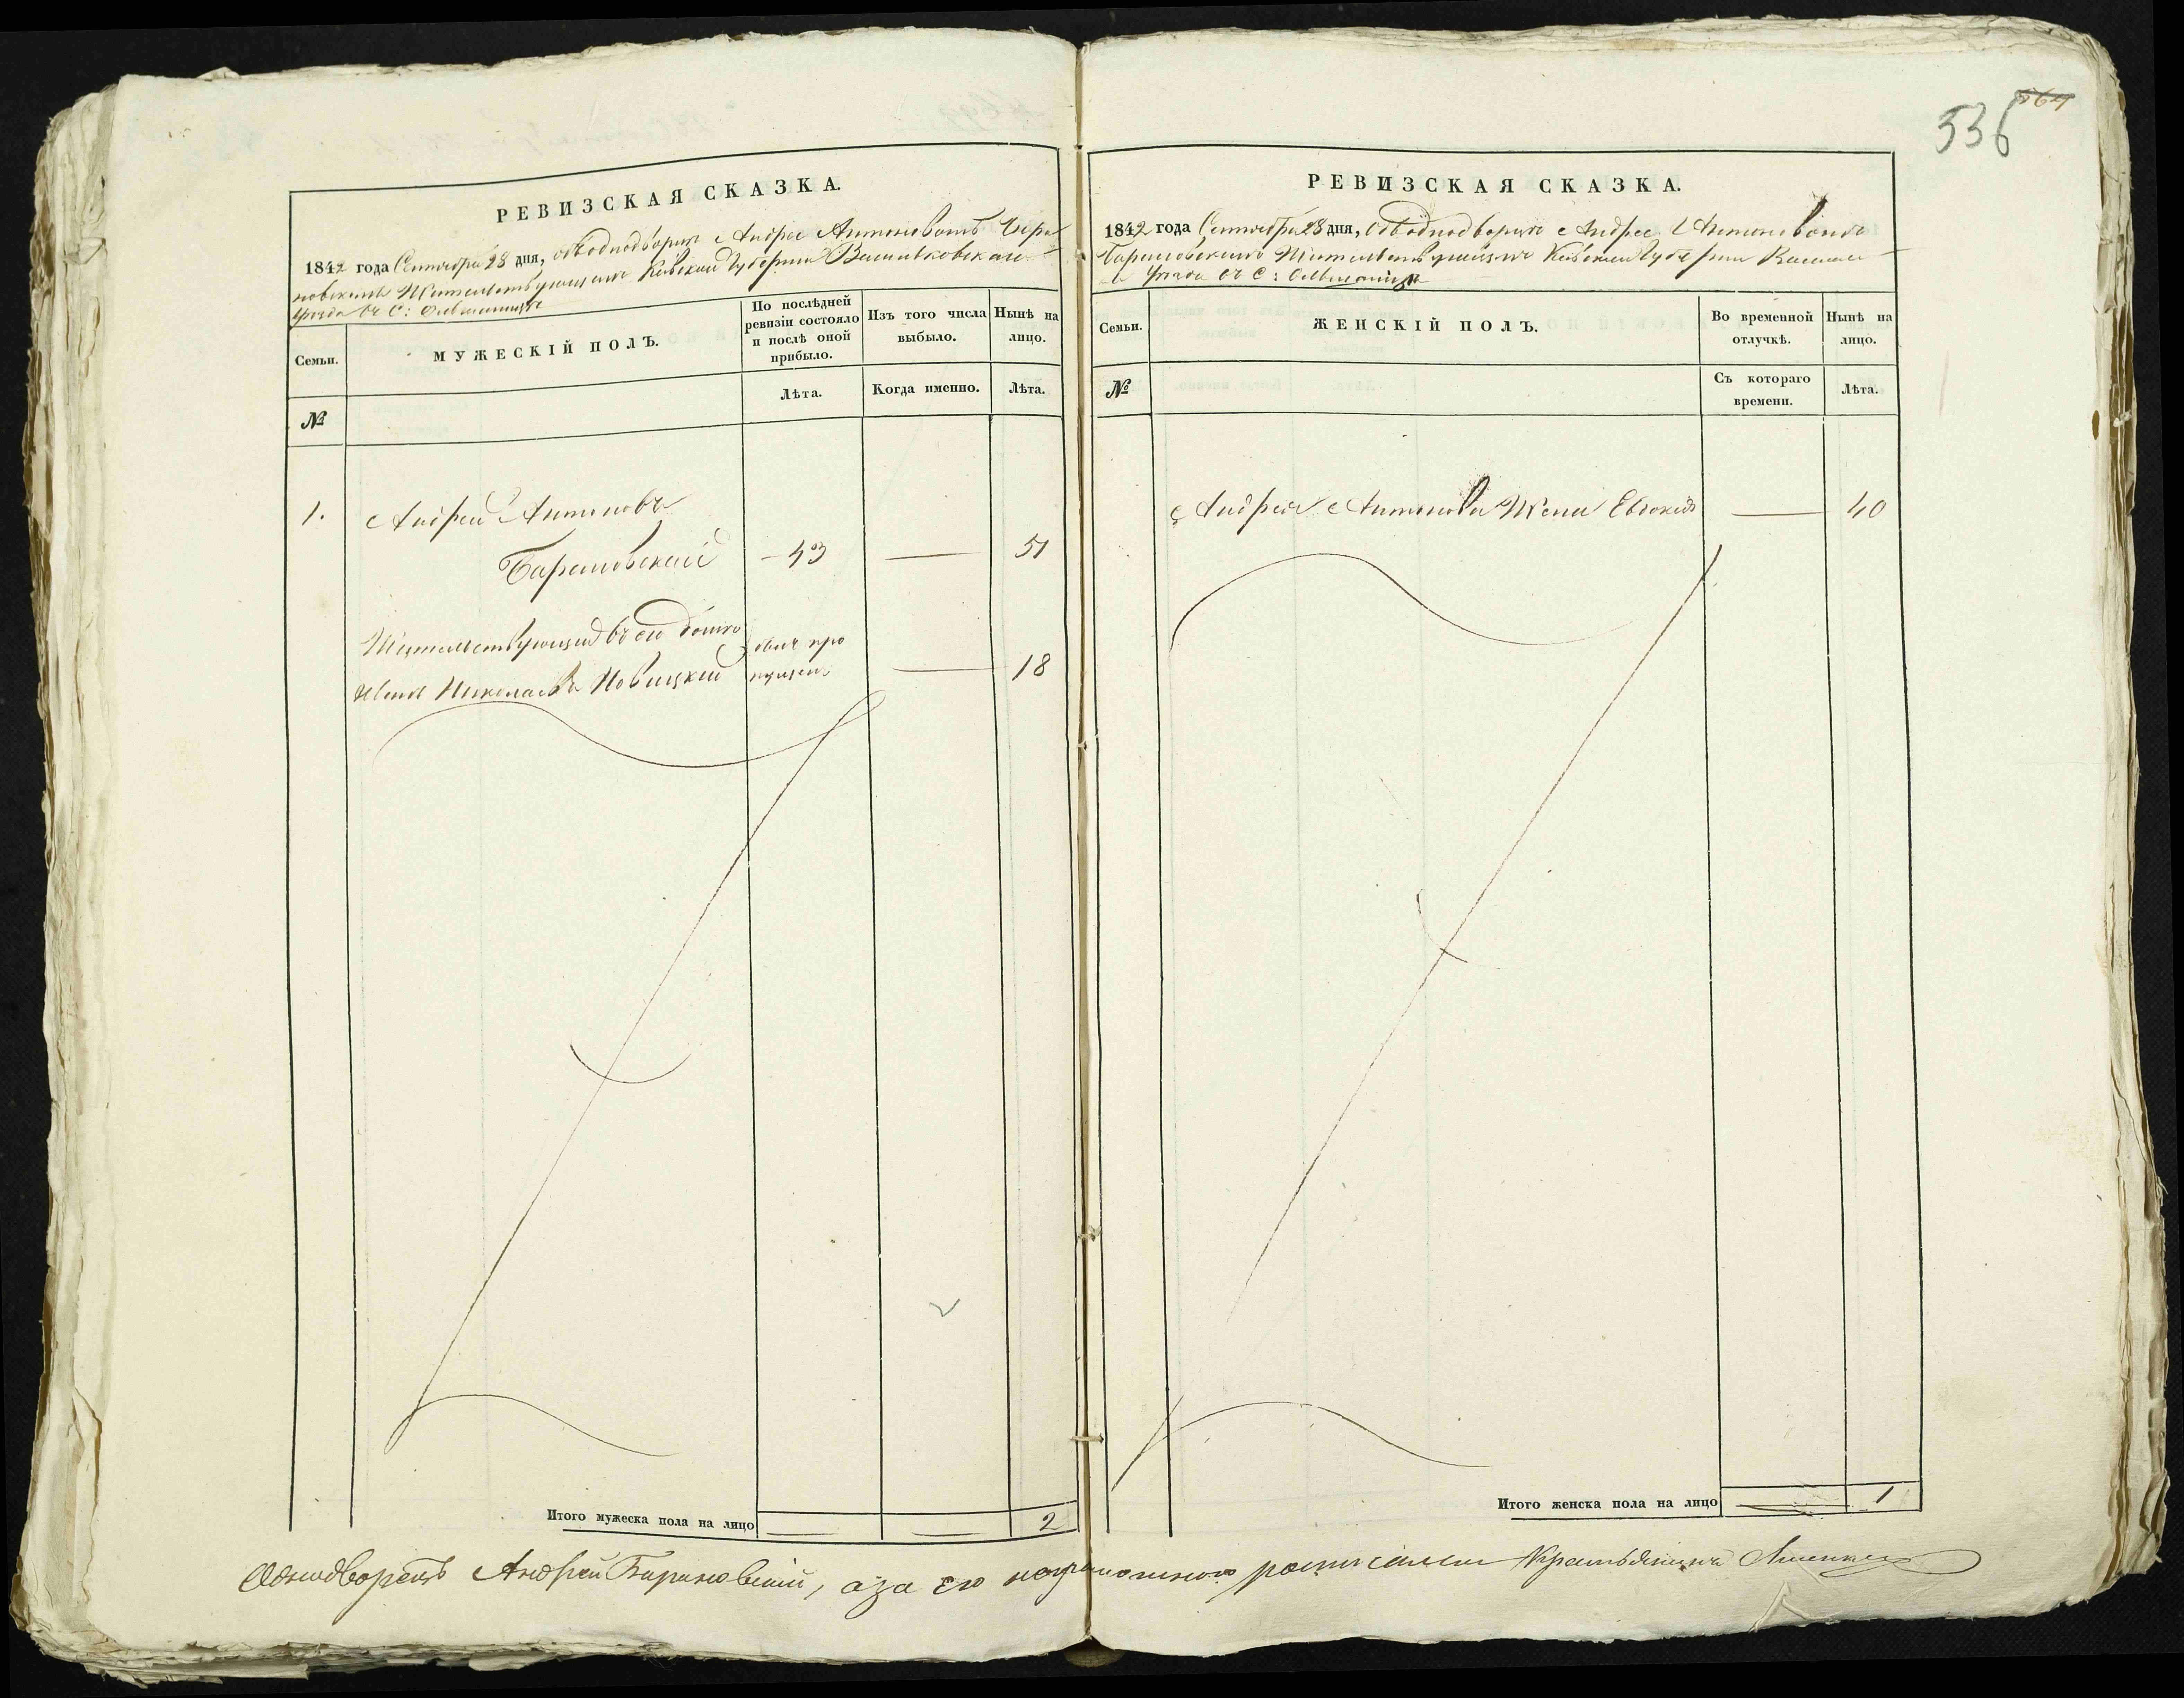 536
564
РЕВИЗСКАЯ СКАЗКА.
1842 года Сентября 28 дня, объ однодворцѣ Андрее Антоновомъ Бара
новскимъ Жительствующимъ Кіевской Губерніи Васильковскаго
уезда въ С:
Семьи.
МУЖЕСКІЙ ПОЛЪ.
По послѣдней ревизіи состояло и послѣ оной прибыло.
Изъ того числа выбыло.
Нынѣ на лицо.
№
Лѣта.
Когда именно.
Лѣта.
1. Андрей Антоновъ
Барановский — 43 — 51
Жительствующий въ его домѣ
Иванъ Николаевъ Новицкий былъ про
пущенъ — 18
Итого мужеска пола на лицо 2
РЕВИЗСКАЯ СКАЗКА.
1842 года Сентября 28 дня, объ однодворцѣ Андрее Антоновомъ
Барановскимъ Жительствующимъ Кіевской Губерніи
уезда въ С:
Семьи.
ЖЕНСКІЙ ПОЛЪ.
Во временной отлучкѣ.
Нынѣ на лицо.
№
Съ котораго времени.
Лѣта.
Андрея Антонова Жена Евдокия — 40
Итого женска пола на лицо 1
Однодворецъ Андрей Барановский, а за его неграмотного росписался